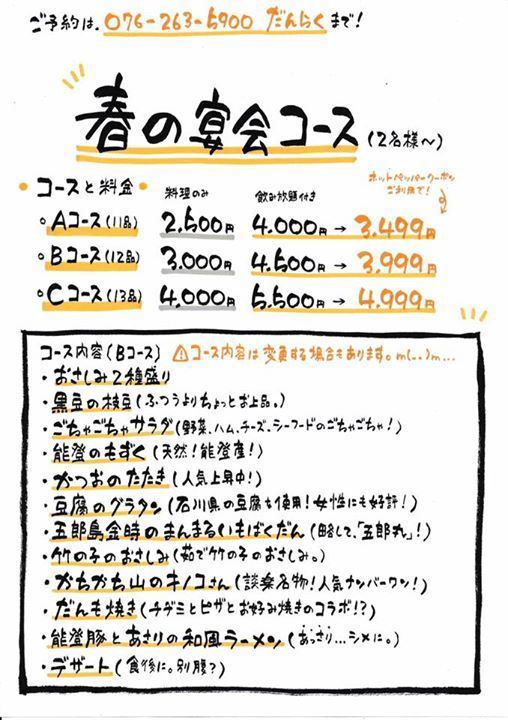 ご予約は、076-263-5900 だんらくまで!
春の宴会コース(2名様〜)
・コースと料金・ 料理のみ 飲み放題付き ホットペッパークーポンご利用で!
。Aコース(11品) 2.500円 4.000円→3.499円
。Bコース(12品) 3.000円 4.500円→3.999円
。Cコース(13品) 4.000円 5.500円→4.999円
コース内容(Bコース) ⚠コース内容は変更する場合もあります。m(_ _)m...
・おさしみ2種盛り
・黒豆の枝豆(ふつうよりちょっとお上品。)
・ごちゃごちゃサラダ(野菜、ハム、チーズ、シーフードのごちゃごちゃ!)
・能登のもずく(天然!能登産!)
・かつおのたたき(人気上昇中!)
・豆腐のグラタン(石川県の豆腐も使用!女性にも好評!)
・五郎島金時のまんまるいもばくだん(略して、「五郎丸」!)
・竹の子のおさしみ(茹で竹の子のおさしみ。)
・かちかち山のキノコさん(談楽名物!人気ナンバーワン!)
・だんも焼き(チヂミとピザとお好み焼きのコラボ!?)
・能登豚とあさりの和風ラーメン(あっさり...シメに。)
・デザート(食後に。別腹?)